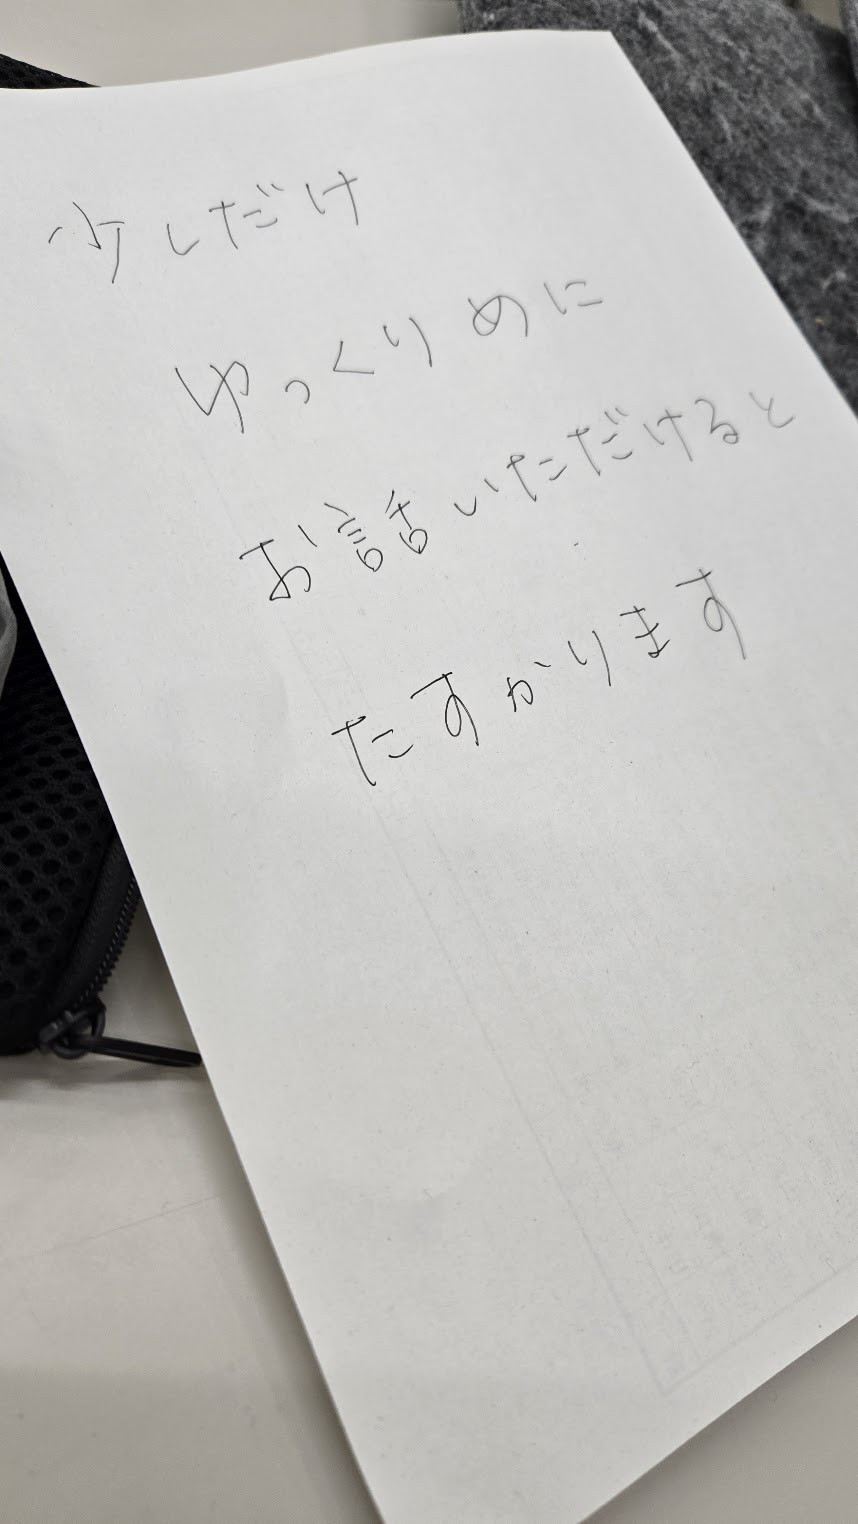 少しだけ
ゆっくりめに
お話いただけると
たすかります